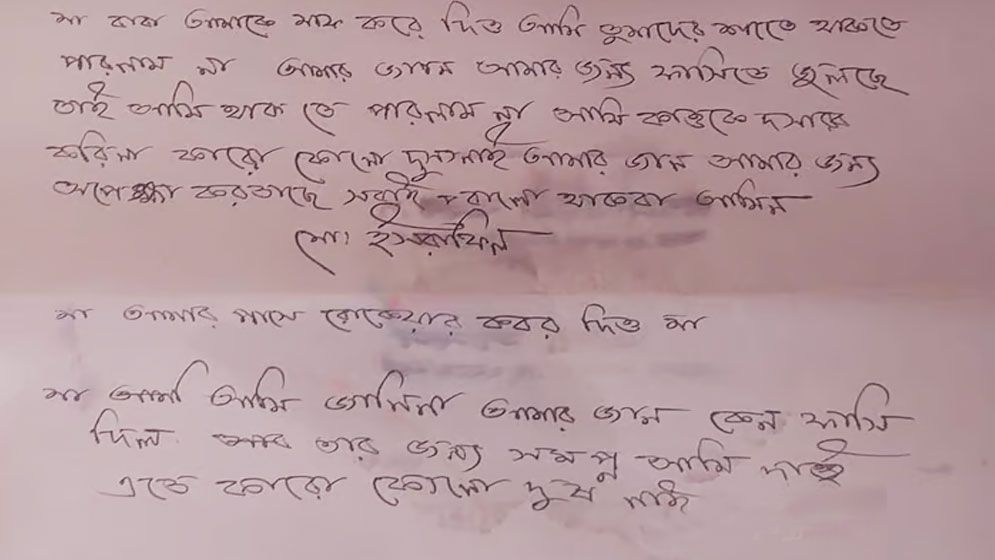 মা বাবা আমাকে মাফ করে দিও আমি তুমাদের সাতে থাকতে
পারলাম না আমার জান আমার জন্য ফাসিতে জুলছে
তাই আমি থাক তে পারলাম না আমি কাউকে দসারব
করিনা কারো কোনো দুস নাই আমার জান আমার জন্য
অপেক্ষা করতাছে সবাই বালো থাকবা আমিন
মো। ইসরাফিল
মা আমার পাসে কবর দিও মা
মা আমি জানিনা আমার জান কেন ফাসি
দিল আর তার জন্য সমপ্ন আমি দাই
এতে কারো কোনো দুষ নাই